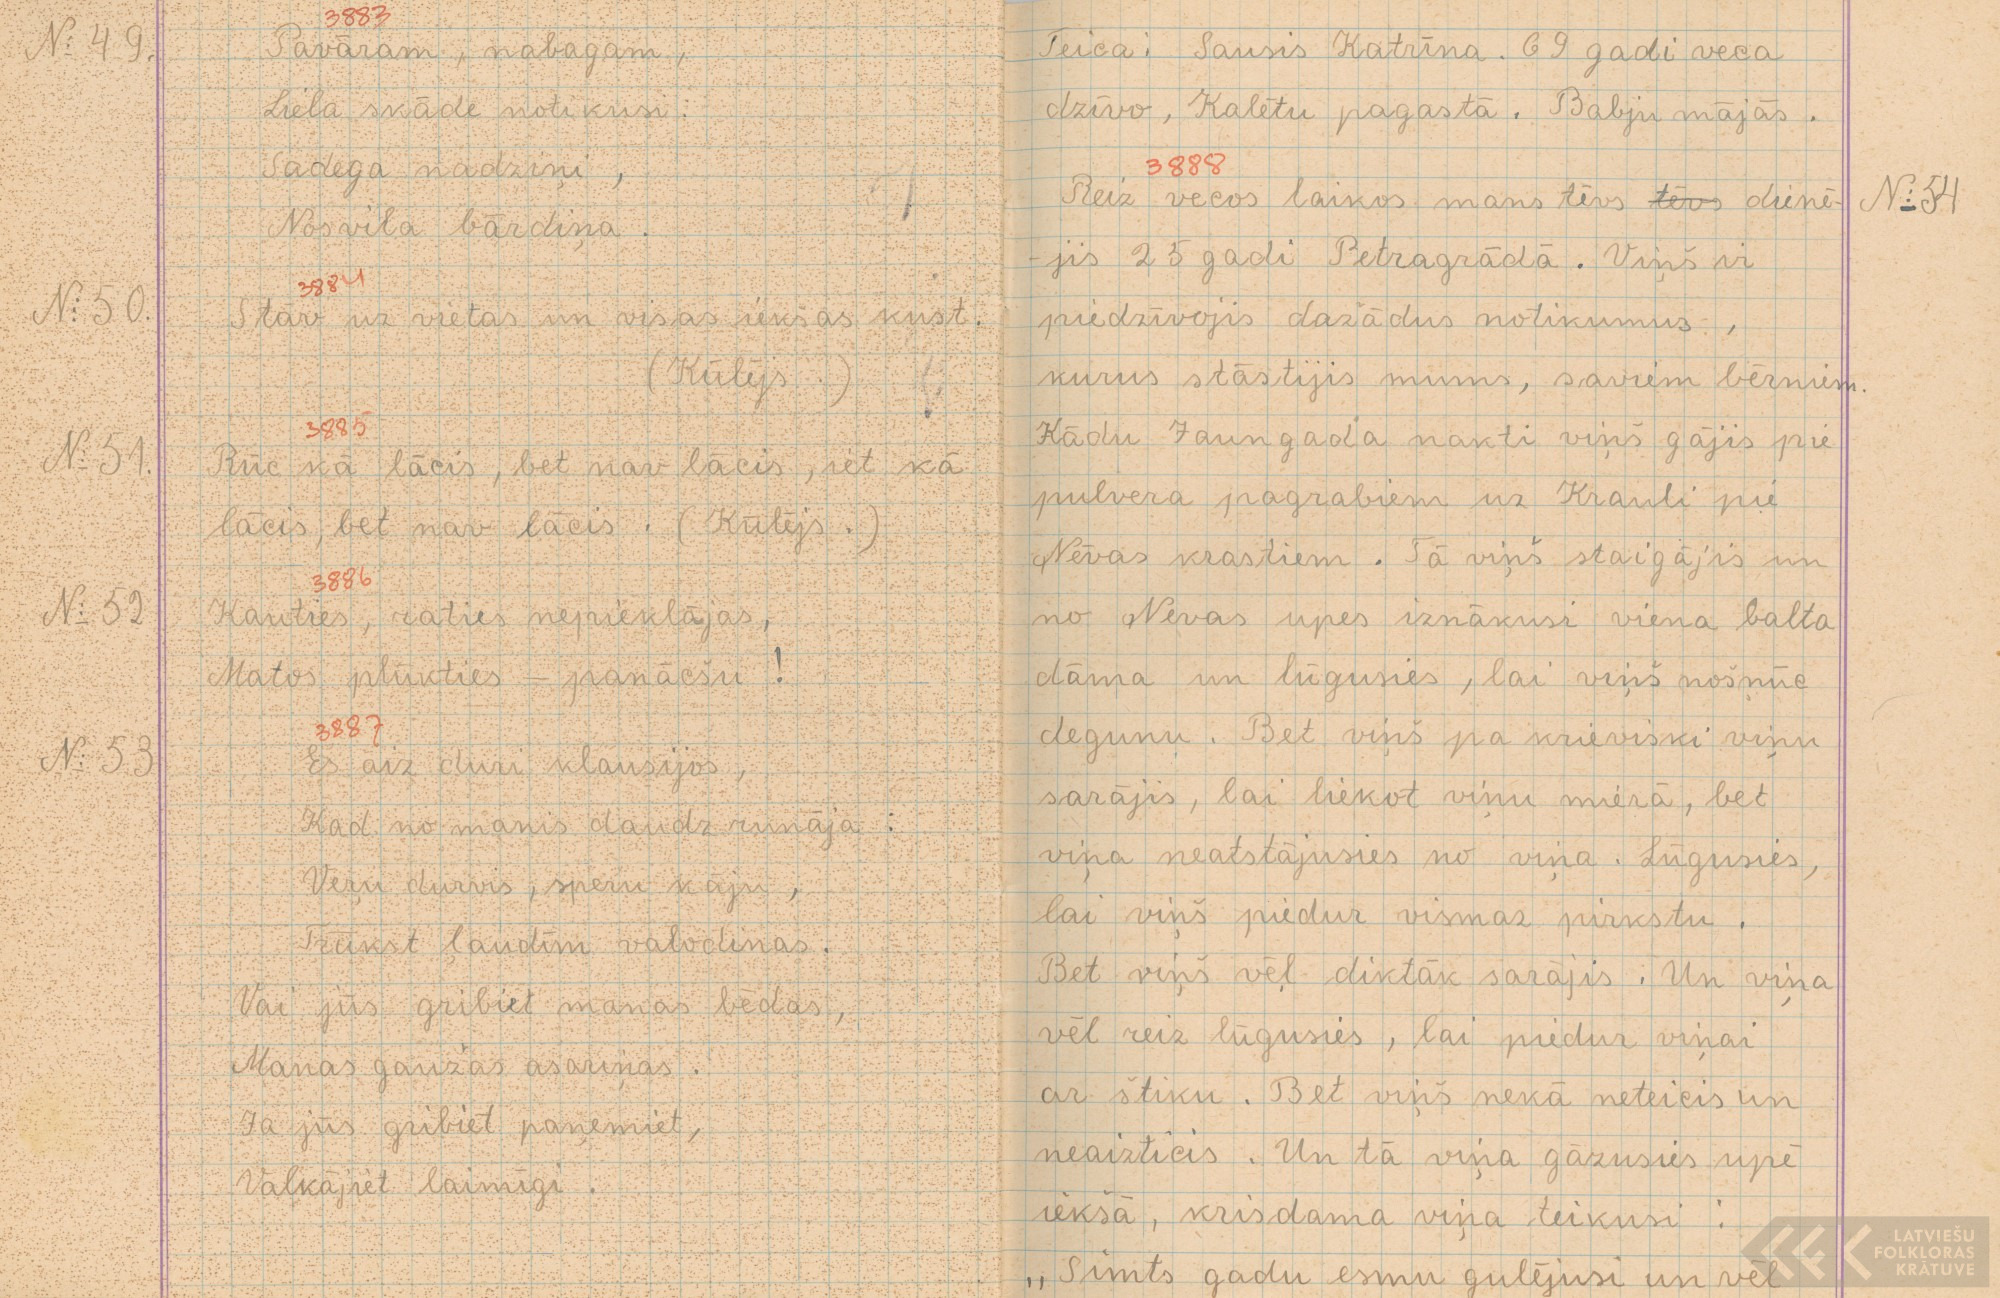 3883
№ 49. Pavāram, nabagam,
Liela skāde notikusi:
Sadega nadziņi,
Nosvila bārdiņa.
3884
№ 50. Stāv uz vietas un visas iekšas kust.
(Kūlējs.)
3885
№ 51. Rūc kā lācis, bet nav lācis, iet kā
lācis, bet nav lācis. (Kūlējs.)
3886
№ 52 Kauties, raties nepieklājas,
Matos plūkties – panācšu!
3887
№ 53 Es aiz duri klausijos,
Kad no manis daudz runāja:
Veŗu durvis, speru kāju,
Trūkst ļaudīm valodinas.
Vai jūs gribiet manas bēdas,
Manas gaužas asariņas.
Ja jūs gribiet paņemiet,
Valkājiet laimīgi.
Teica: Sausis Katrīna. 69 gadi veca
dzīvo, Kalētu pagastā. Babju mājās.
3888
Reiz vecos laikos mans tēvs tēvs dienē- № 54
-jis 25 gadi Petragrādā. Viņš ir
piedzīvojis dažādus notikumus,
kurus stāstijis mums, saviem bērniem.
Kādu Jaungada nakti viņš gājis pie
pulvera pagrabiem uz Krauli pie
Nēvas krastiem. Tā viņš staigājis un
no Nevas upes iznākusi viena balta
dāma un lūgusies, lai viņš nošņūc
degunu. Bet viņš pa krieviski viņu
sarājis, lai liekot viņu mierā, bet
viņa neatstājusies no viņa. Lūgusies,
lai viņš piedur vismaz pirkstu.
Bet viņš vēļ diktāk sarājis. Un viņa
vēl reiz lūgusies, lai piedur viņai
ar štiku. Bet viņš nekā neteicis un
neaizticis. Un tā viņa gāzusies upē
iekšā, krisdama viņa teikusi:
„Simts gadu esmu gulējusi un vēl
LATVIEŠU
FOLKLORAS
KRĀTUVE